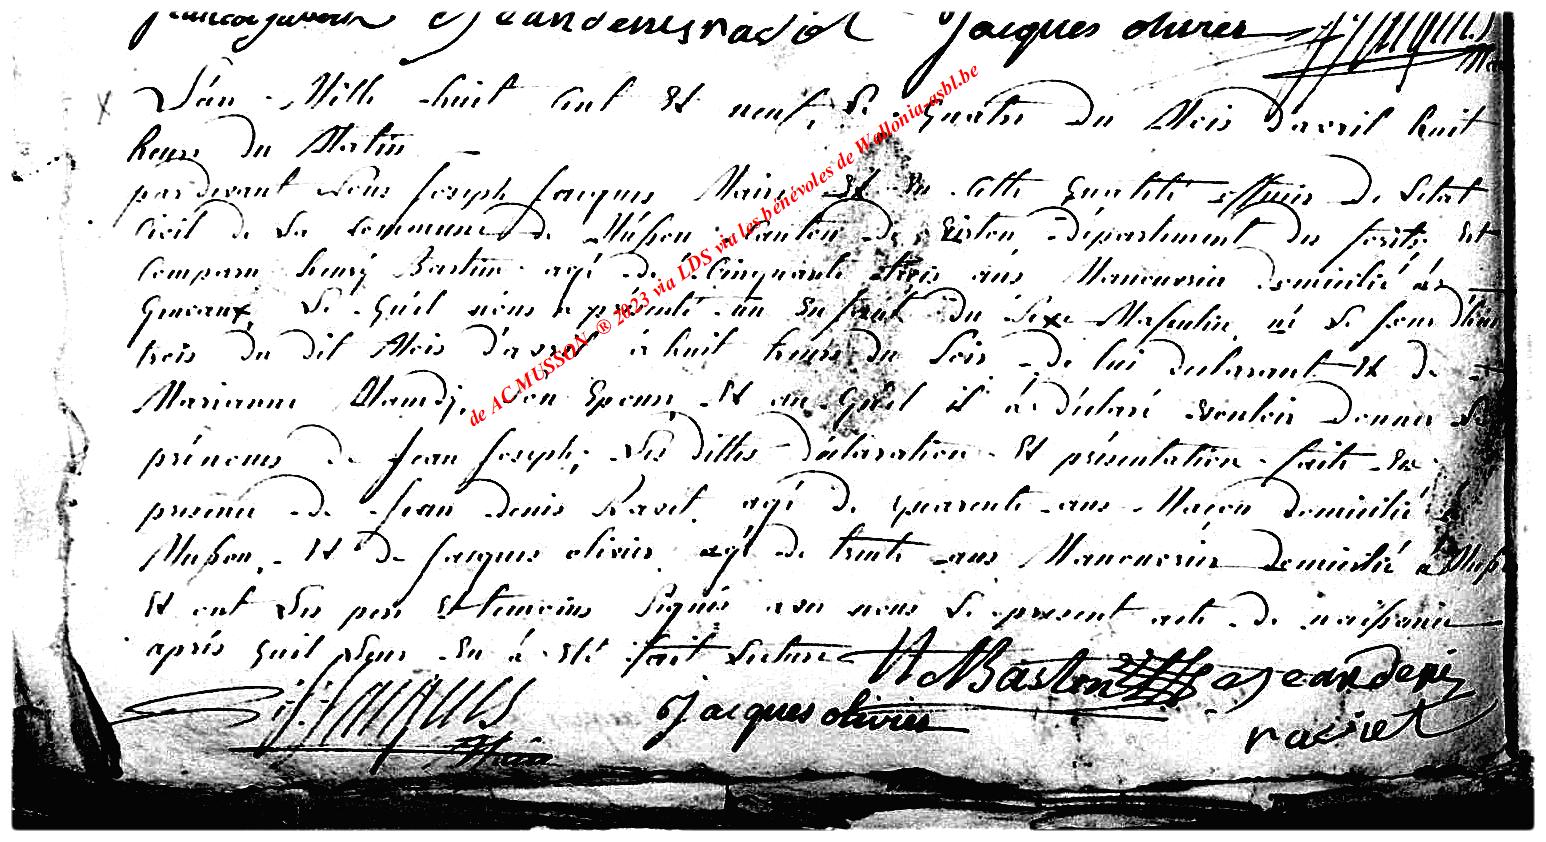 jeandenis raviol Jacques olivier
L'an Mille huit Cent Et neuf, Le quatre du Mois d'avril huit
heures du Matin
pardevant Nous Joseph Jacques Maire Et En Cette qualité officier De L'etat
Civil de La Commune de Musson Canton de département des forêts Est
Comparu henry Bastin agé de Cinquante trois ans Manouvrier domicilié à
Le quel nous a présenté un Enfant du Sexe Masculin né Le Jour d'hier
trois du dit Mois d'avril à huit heures du Soir de lui declarant Et de
Marianne son Epouse Et au quel il à déclaré vouloir donner Le
prénoms de Jean Joseph, Les dittes déclaration Et présentation faite En
presence de Jean denis Raviet agé de quarente ans Maçon domicilié à
Musson, Et de Jacques olivier agé de trente ans Manouvrier Domicilié à Musson
Et ont Les pere Et temoins Signés avec nous Le present acte de naissance
aprés quil Leur En à Eté fait Lecture
H Bastin jeandeni
Jacques olivier raviet
Maire
de AC MUSSON ® 2023 via LDS via les bénévoles de Wallonia-asbl.be